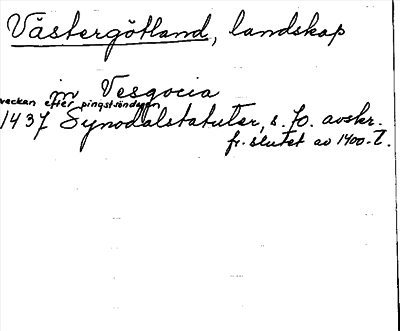 Västergötland, landskap
in Vesgocia
veckan efter pingstsöndagen
1437 Synodalstatuter, s. 70. avskr.
fr. slutet av 1400-t.